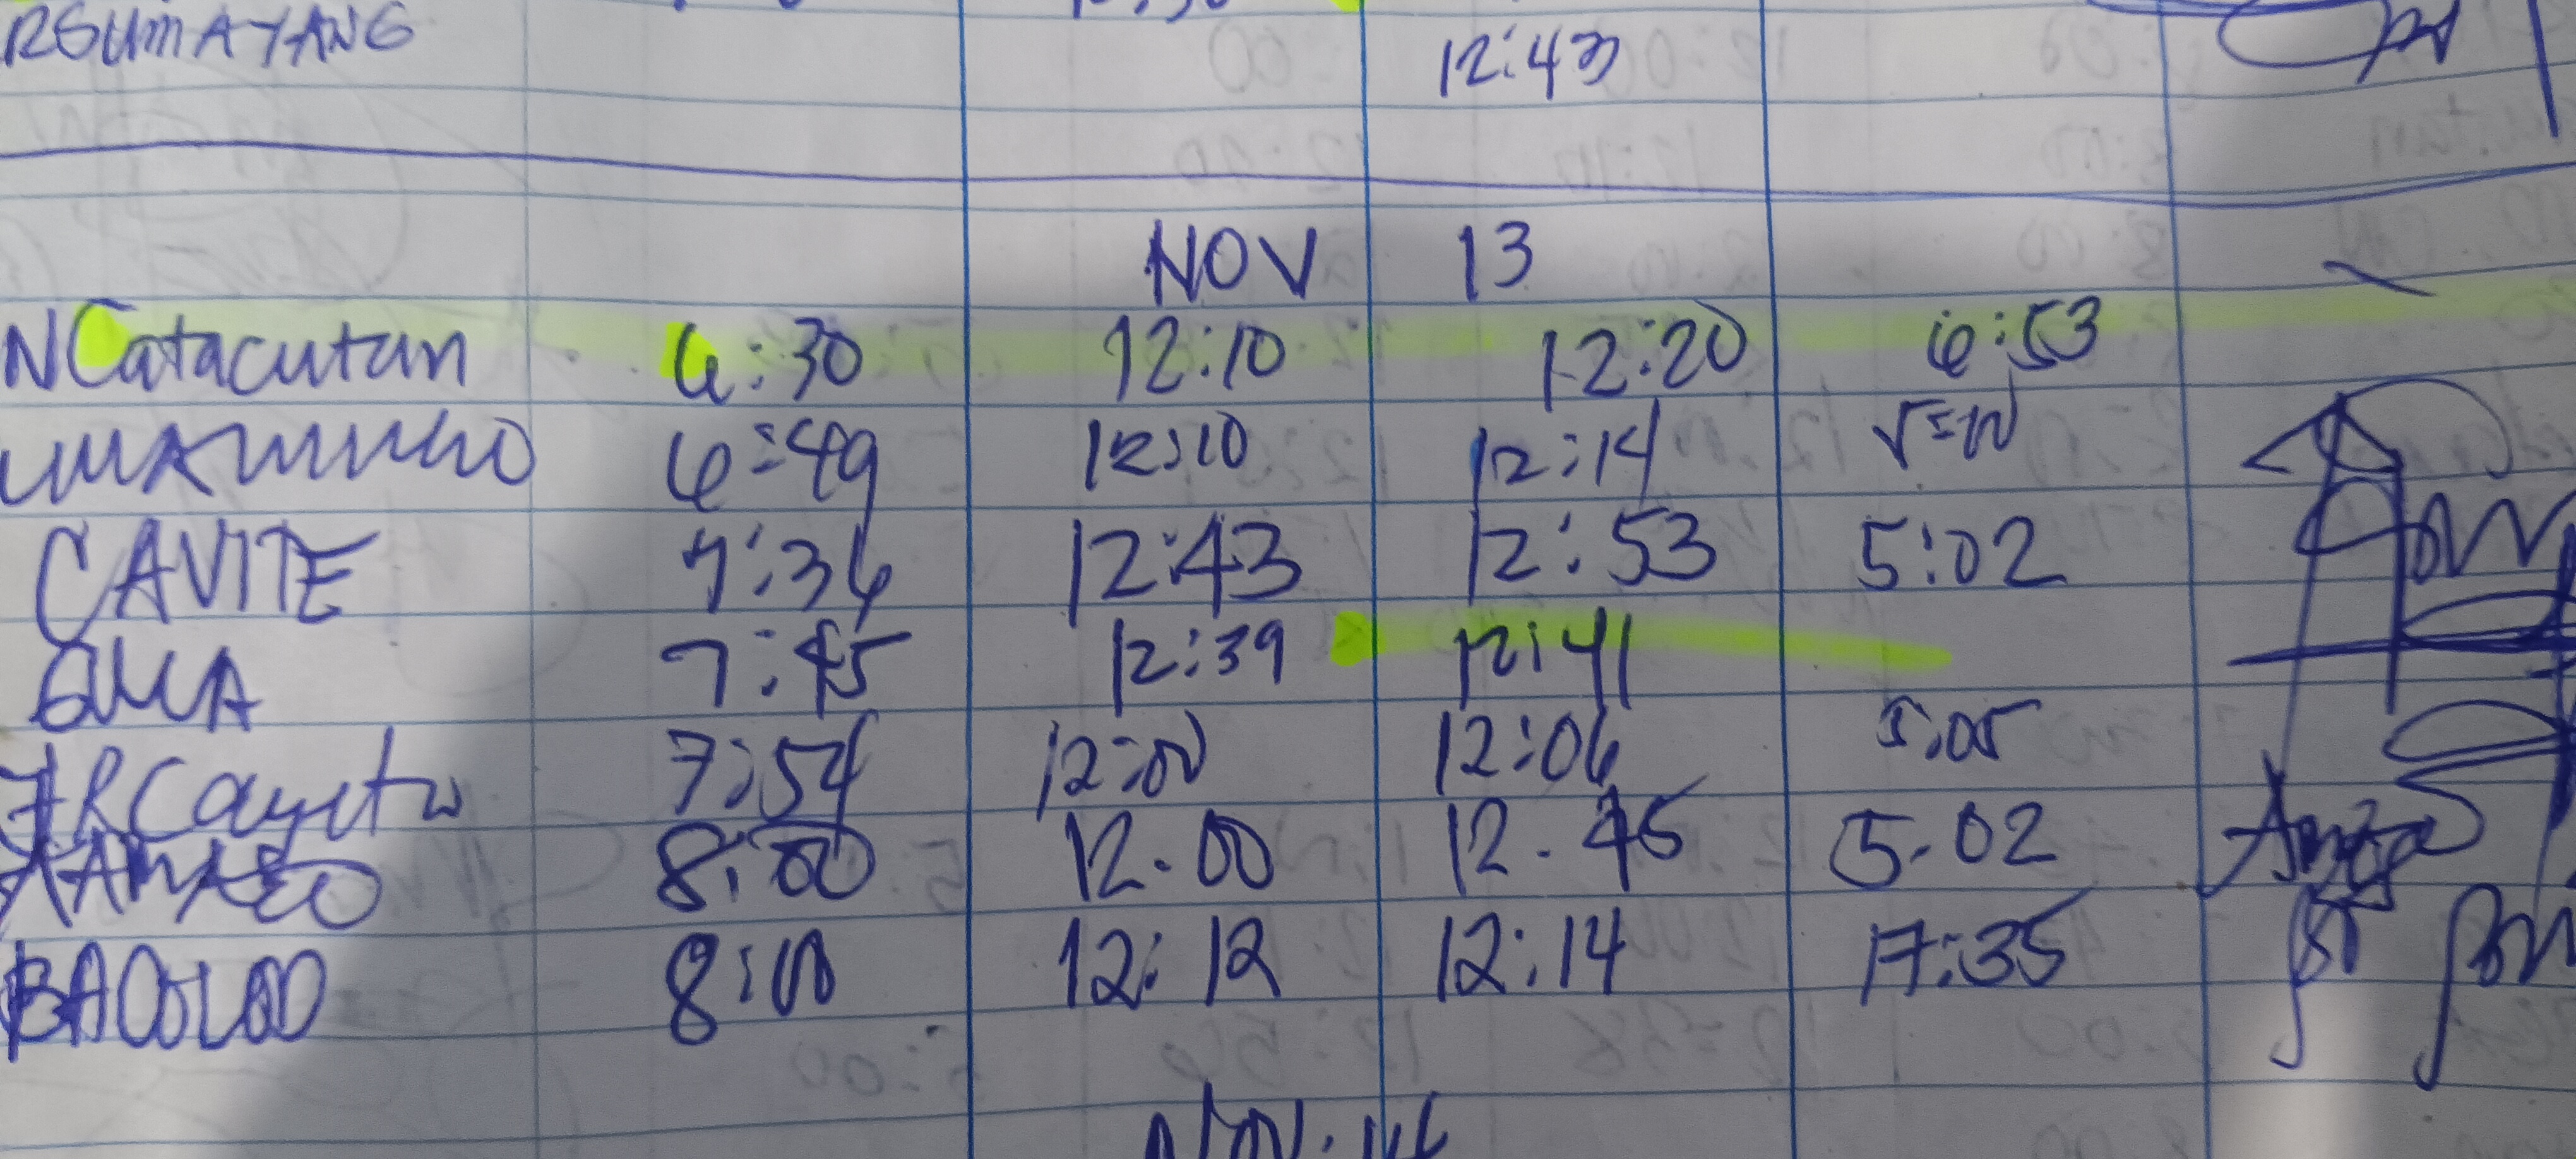 RSUMAYANG 12:43
NOV 13
NCatacutan 6:30 12:10 12:20 6:53
6:49 12:10 12:14
CAVITE 7:36 12:43 12:53 5:02
7:45 12:39 12:41
7:54 12:00 12:06 5:05
8:00 12.00 12.45 5.02
BACOLOD 8:00 12:12 12:14 17:35